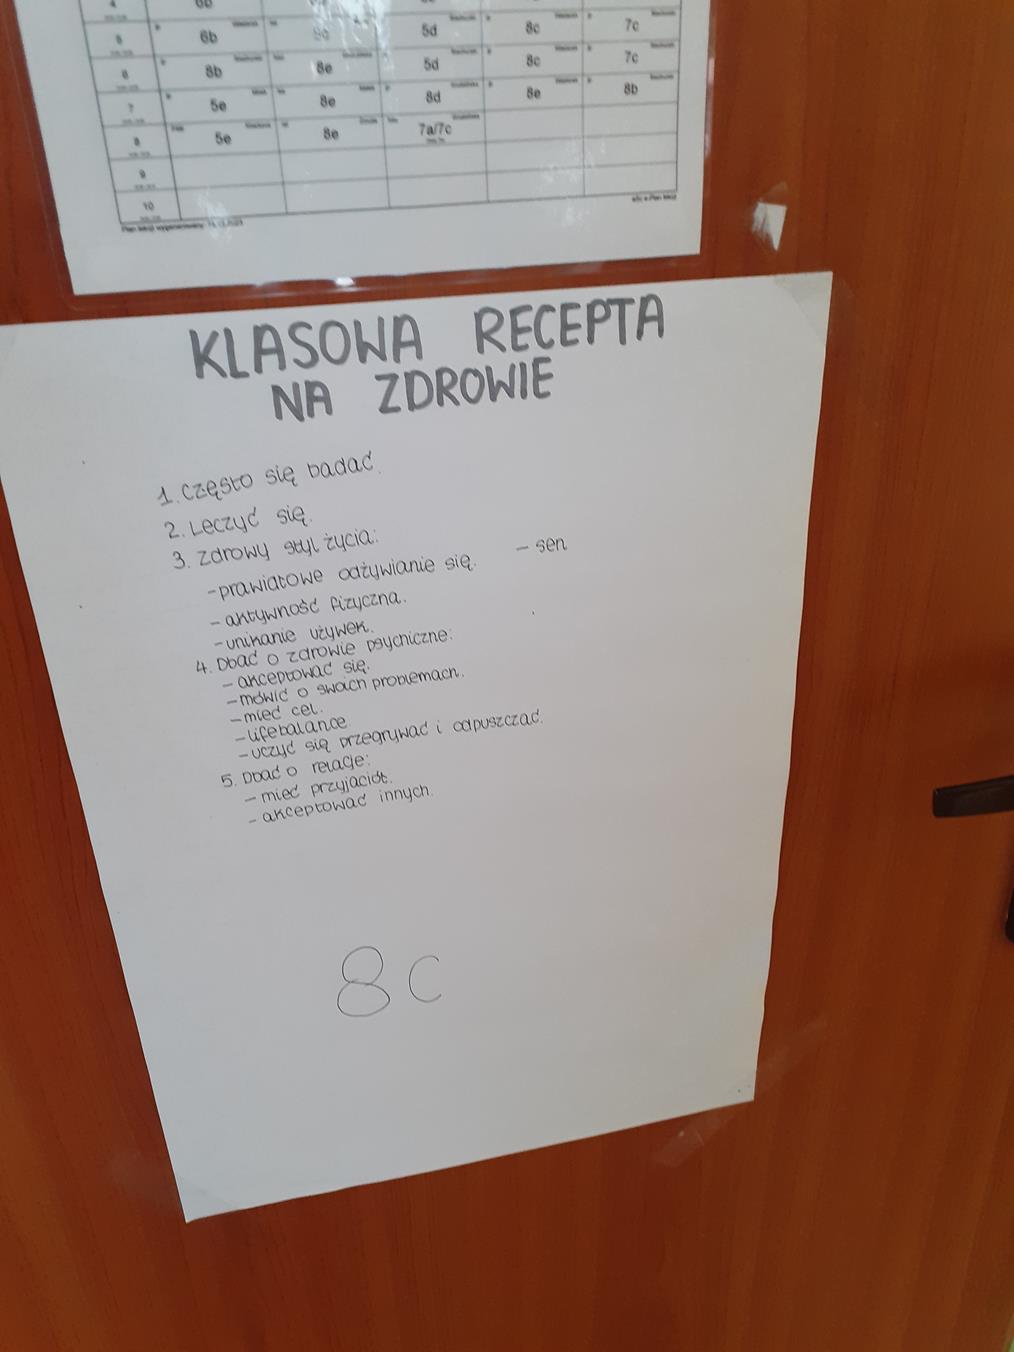 6b
5
6b
5d
8c
7c
6
8b
8e
5d
8c
7c
7
5e
8e
8d
8e
8b
8
5e
8e
7a/7c
9
10
Plan lekcji wygenerowany:
KLASOWA RECEPTA
NA ZDROWIE
1. Często się badać.
2. Leczyć się.
3. Zdrowy styl życia:
- prawiatowe odżywianie się. - sen
- aktywność fizyczna.
- unikanie używek.
4. Dbać o zdrowie psychiczne:
- akceptować się.
- mówić o swoich problemach.
- mieć cel.
- lifebalance
- uczyć się przegrywać i odpuszczać.
5. Dbać o relacje:
- mieć przyjaciół.
- akceptować innych.
8c